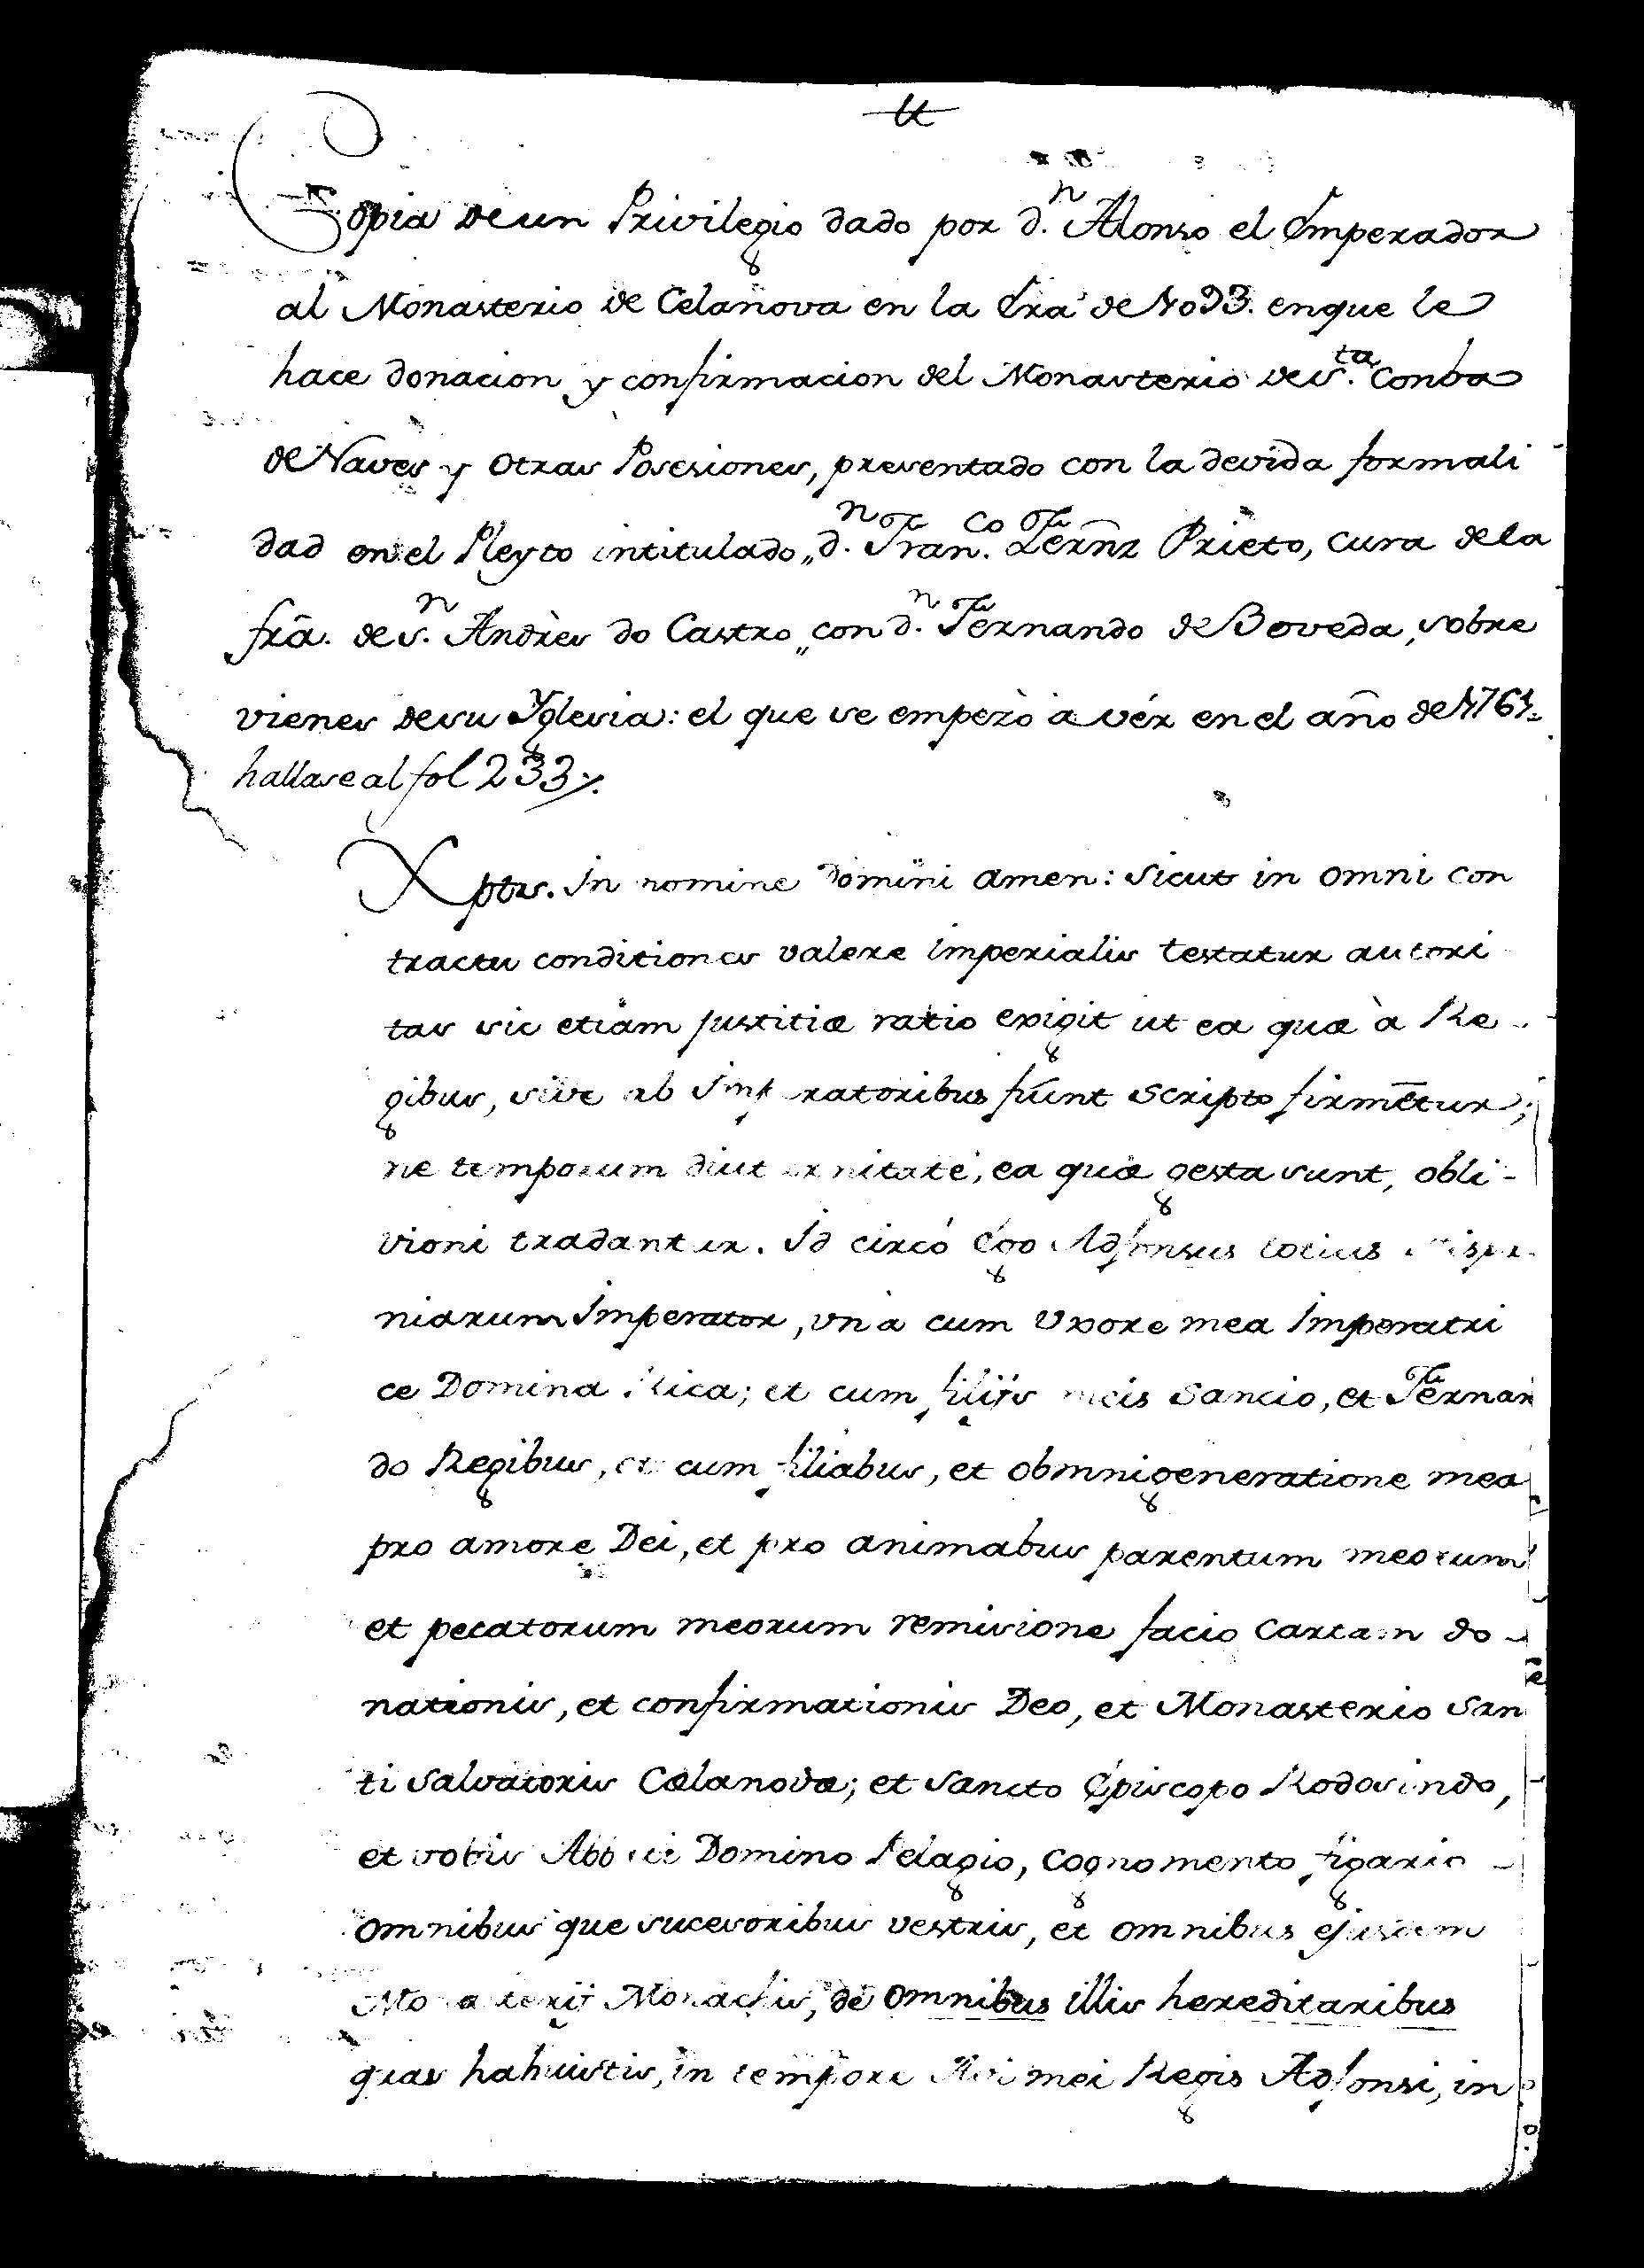 Copia de un Privilegio dado por d.n Alonso el Emperador
al Monasterio de Celanova en la Era de 1093. en que le
hace donacion y confirmacion del Monasterio de S.ta Conba
de Naves y otras Posesiones, presentado con la devida formali
dad en el Pleyto intitulado „d.n Fran.co Fern̄z Prieto, cura de la
frã. de S.n Andrès do Castro„ con d.n Fernando de Boveda, sobre
vienes de su Yglesia: el que se empezò a vér en el año de 1761.
hallase al fol 233
Xptus. In nomine Domini amen: Sicut in omni con
tractu conditiones valere imperialis testatur autori
tas sic etiam justitiæ ratio exigit ut ea quæ à Re-
gibus, sive ab Imperatoribus fiunt scripto firmētur;
ne temporum diuturnitate, ea quæ gesta sunt, obli-
vioni tradantur. Id circó Ego Adfonsus totius Hispa
niarum Imperator, una cum Uxore mea Imperatri
ce Domina Rica; et cum filijs meis Sancio, et Fernan
do Regibus, et cum filiabus, et obmnigeneratione mea
pro amore Dei, et pro animabus parentum meorum
et pecatorum meorum remisione facio Cartam do-
nationis, et confirmationis Deo, et Monasterio San
ti Salvatoris Cælanovæ; et Sancto Episcopo Rodosindo,
et vobis Abbati Domino Pelagio, cognomento figario
omnibus que sucesoribus vestris, et omnibus ejusdem
Monasterij Monachis, de omnibus illis hereditaribus
quas habuistis, in tempore Avi mei Regis Adfonsi, in